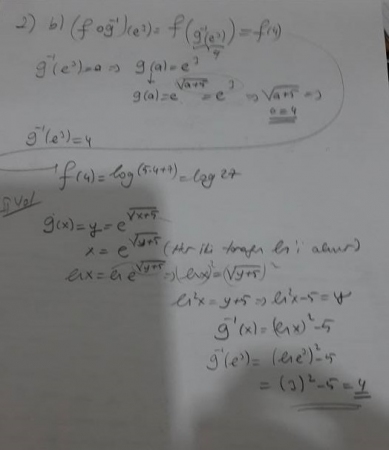 2) b) (f o g⁻¹)(e³) = f(g⁻¹(e³)) = f(4)
4
g⁻¹(e³) = a ⇒ g(a) = e³
g(a) = e^√(a+5) = e³ ⇒ √(a+5) = 3
a = 4
g⁻¹(e³) = 4
f(4) = log(5.4+7) = log 27
II. Yol
g(x) = y = e^√(x+5)
x = e^√(y+5) (Her iki tarafın ln'i alınır)
ln x = ln e^√(y+5) ⇒ (ln x)² = (√(y+5))²
ln²x = y+5 ⇒ ln²x-5 = y
g⁻¹(x) = (ln x)²-5
g⁻¹(e³) = (ln e³)²-5
= (3)²-5 = 4